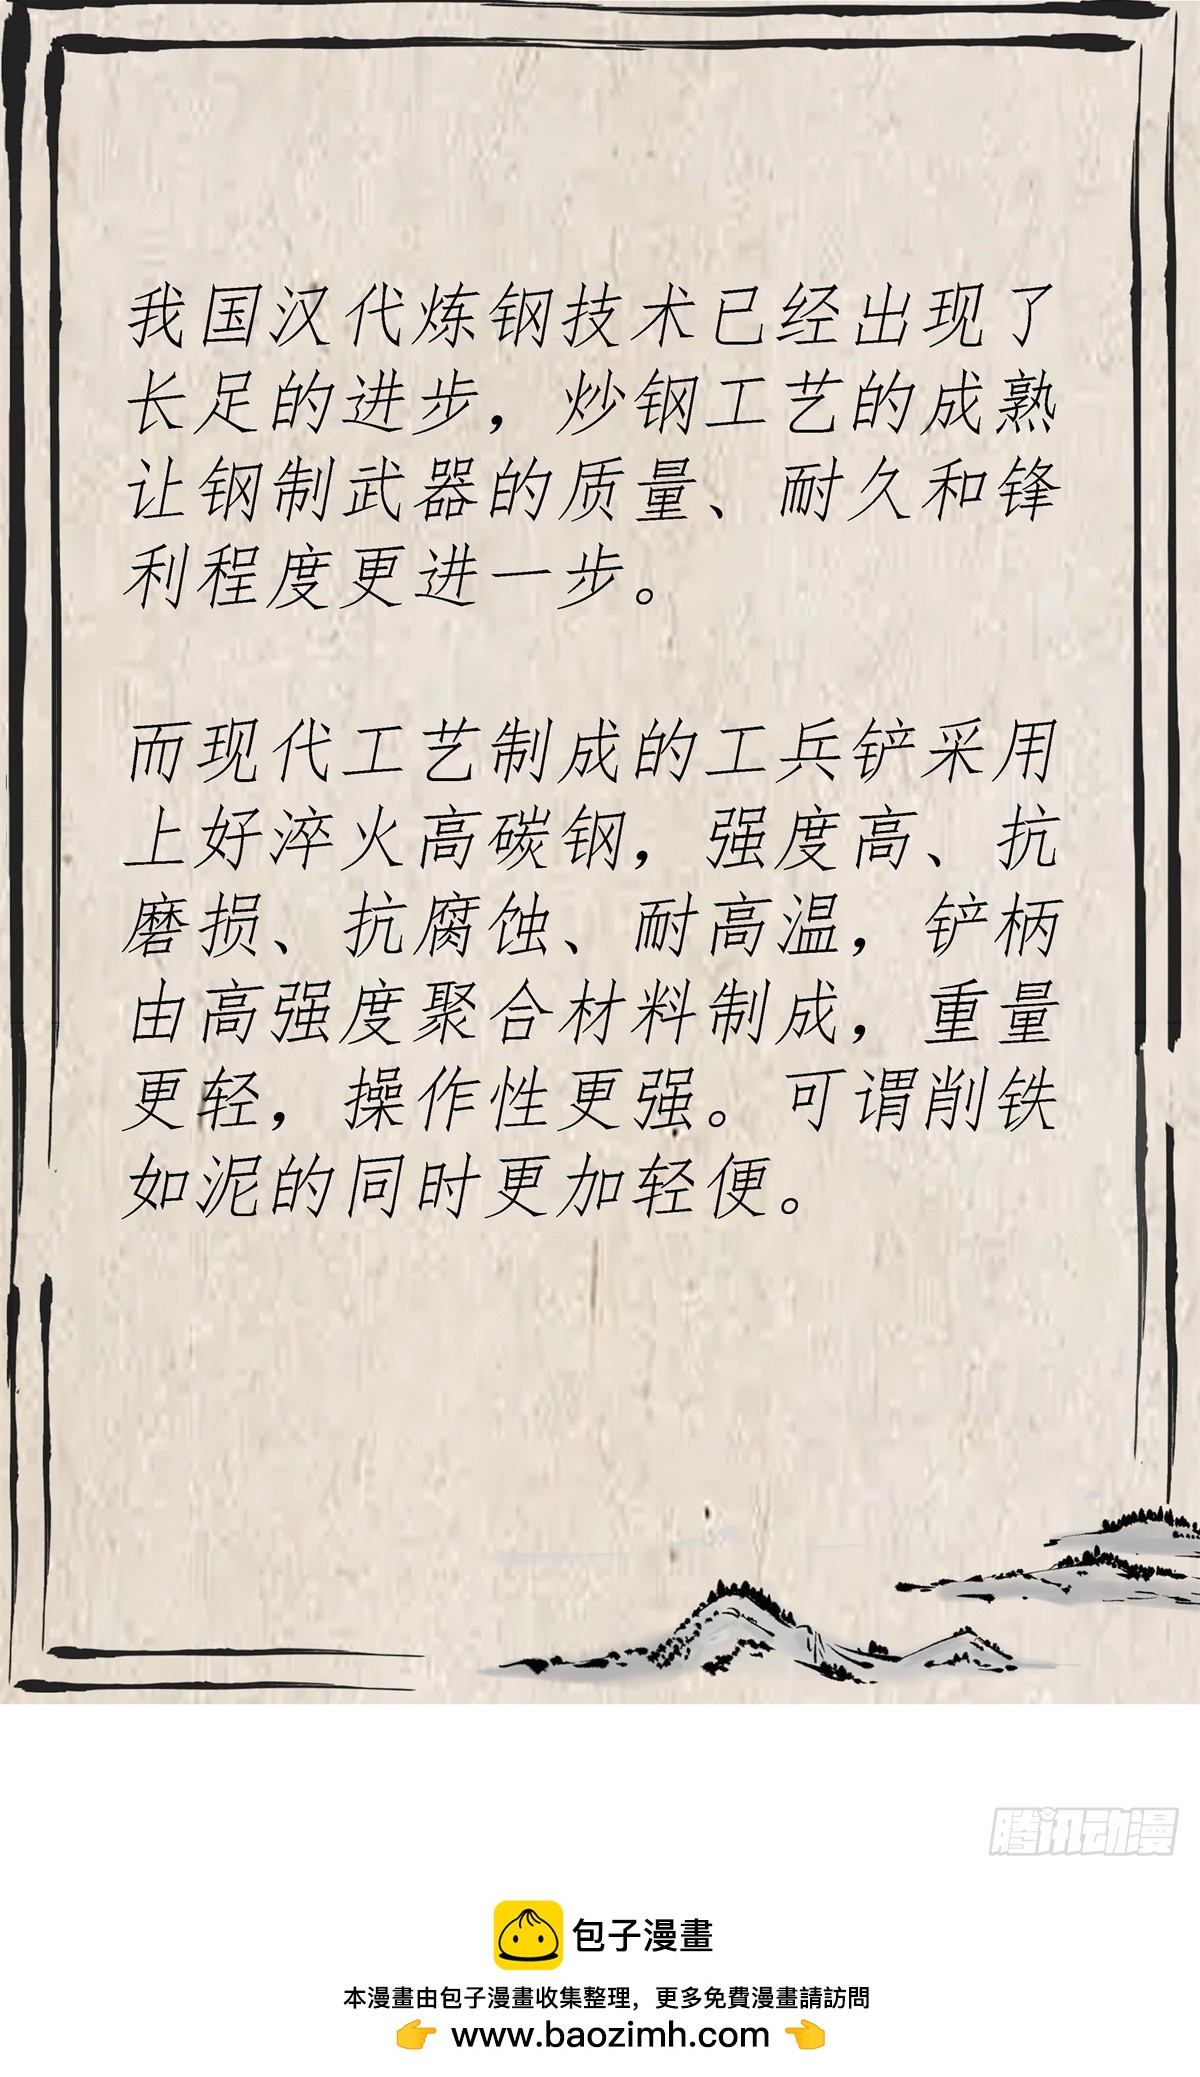 我国汉代炼钢技术已经出现了
长足的进步，炒钢工艺的成熟
让钢制武器的质量、耐久和锋
利程度更进一步。
而现代工艺制成的工兵铲采用
上好淬火高碳钢，强度高、抗
磨损、抗腐蚀、耐高温，铲柄
由高强度聚合材料制成，重量
更轻，操作性更强。可谓削铁
如泥的同时更加轻便。
腾讯动漫
包子漫畫
本漫畫由包子漫畫收集整理，更多免費漫畫請訪問
www.baozimh.com